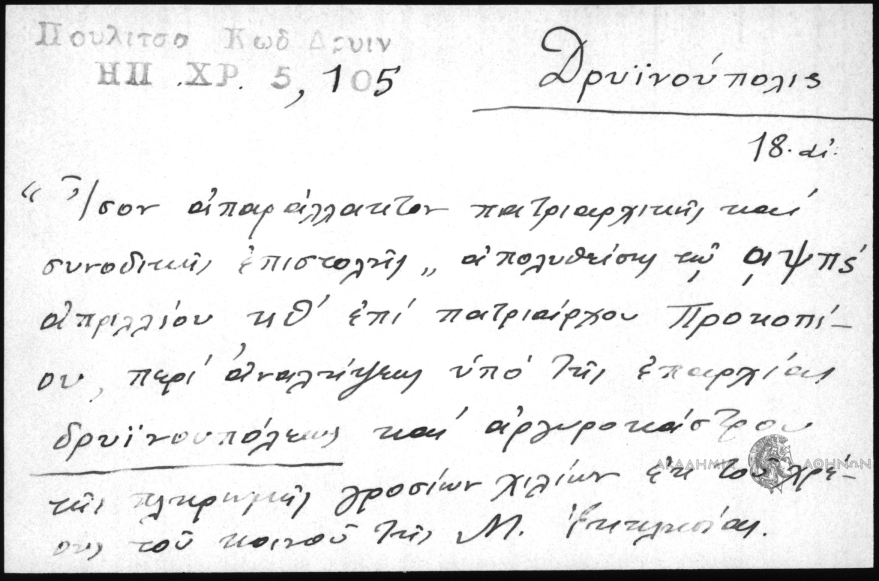 Πουλιτσο Κωδ Δρυιν
ΗΠ .ΧΡ. 5, 105
Δρυϊνούπολις
18. αἰ.
“ Ἴσον ἀπαράλλακτον πατριαρχικῆς καί
συνοδικῆς ἐπιστολῆς „ ἀπολυθείσης τῷ ͵αψπς΄
ἀπριλλίου κθ΄ ἐπί πατριάρχου Προκοπί-
ου, περί ἀναλήψεως ὑπό τῆς ἐπαρχίας
δρυϊνουπόλεως καί ἀργυροκάστρου
τῆς πληρωμῆς γροσίων χιλίων ἐκ τοῦ χρέ-
ους τοῦ κοινοῦ τῆς Μ. Ἐκκλησίας.
ΑΚΑΔΗΜΙΑ ΑΘΗΝΩΝ